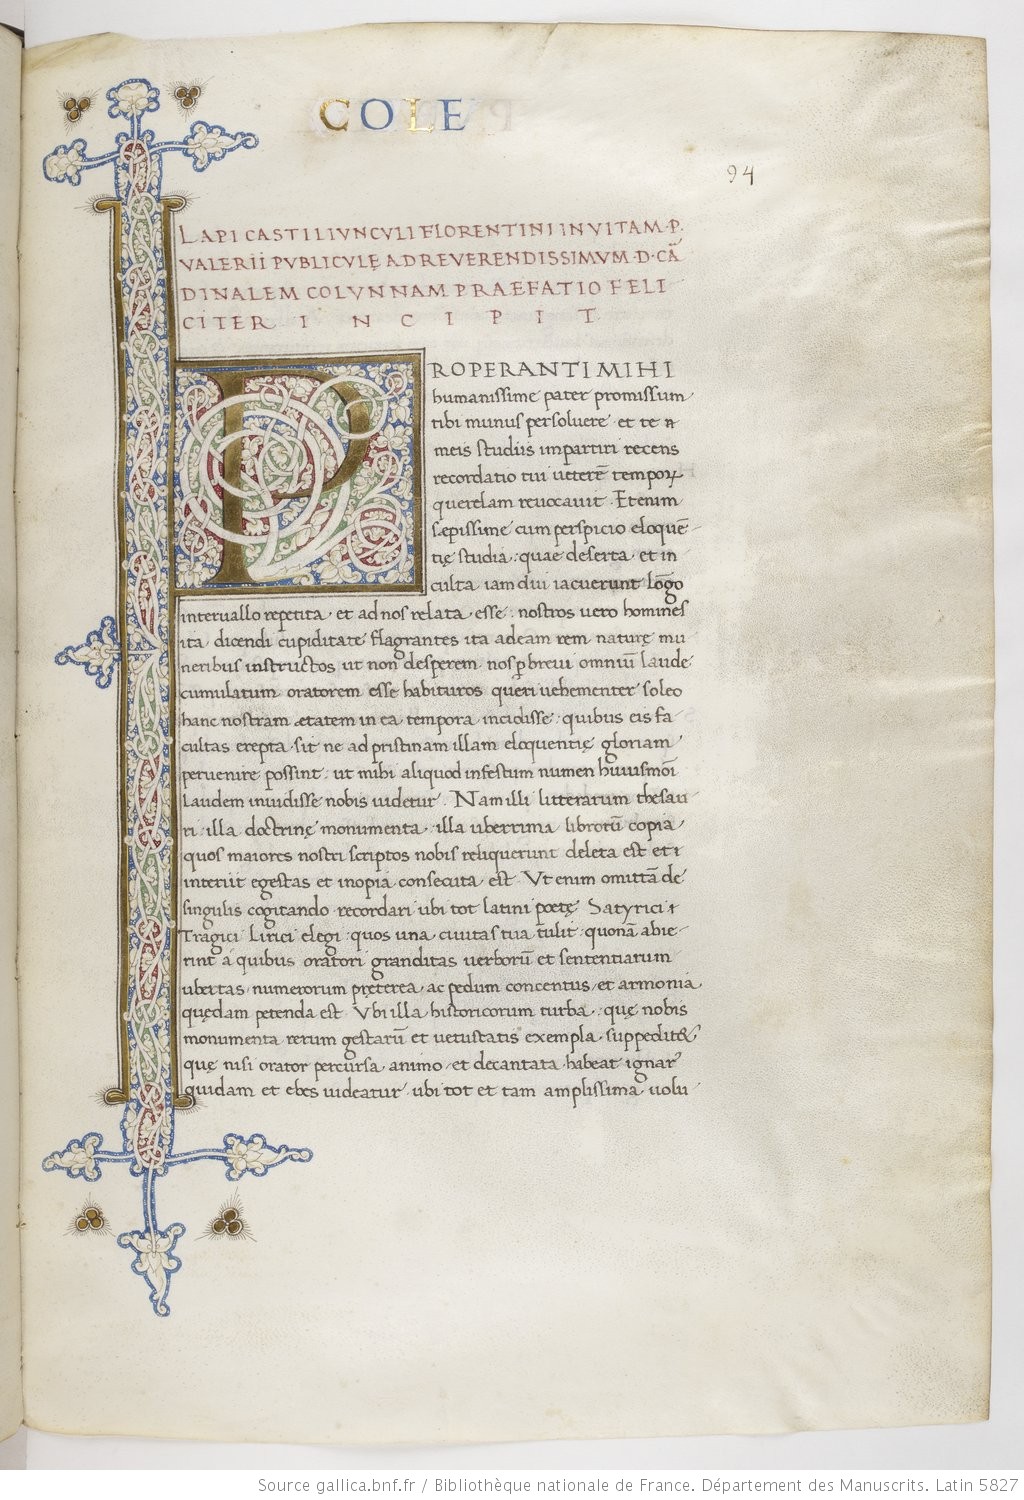 COLE
94
LAPI CASTILIVNCVLI FLORENTINI IN VITAM · P ·
VALERII PVBLICVLĘ AD REVERENDISSIMVM · D · CÃ
DINALEM COLVNNAM PRAEFATIO FELI
CITER INCIPIT
PROPERANTI MIHI
humanissime pater promissum
tibi munus persoluere · et te &
meis studiis impartiri recens
recordatio tui ueterẽ temporꝝ
querelam reuocauit · Etenim
sępissime cum perspicio eloquẽ
tię studia : quae deserta · et in
culta iam diu iacuerunt lõgo
interuallo repetita · et ad nos relata esse : nostros uero homines
ita dicendi cupiditate flagrantes ita ad eam rem naturę mu
neribus instructos ut non desperem nos ꝑ breui omniũ laude
cumulatum oratorem esse habituros queri uehementer soleo
hanc nostram ætatem in ea tempora incidisse : quibus eis fa
cultas erepta · sit ne ad pristinam illam eloquentię gloriam
peruenire possint : ut mihi aliquod infestum numen huiusmõi
laudem inuidisse nobis uidetur · Nam illi litterarum thesau
ri · illa doctrinę monumenta · illa uberrima librorũ copia
quos maiores nostri scriptos nobis reliquerunt deleta est et
interiit egestas et inopia consecuta est · Vt enim omittã de
singulis cogitando recordari ubi tot latini poetę Satyrici &
Tragici Lirici elegi : quos una ciuitas tua tulit : quonã abie
rint a quibus oratori granditas uerborũ et sententiarum
ubertas · numerorum pręterea · ac pedum concentus · et armonia
quędam petenda est · Vbi illa historicorum turba · quę nobis
monumenta rerum gestarũ et uetustatis exempla · suppedit&
quę nisi orator percursa · animo · et decantata · habeat ignar᾿
quidam et ebes uideatur · ubi tot et tam amplissima uolu